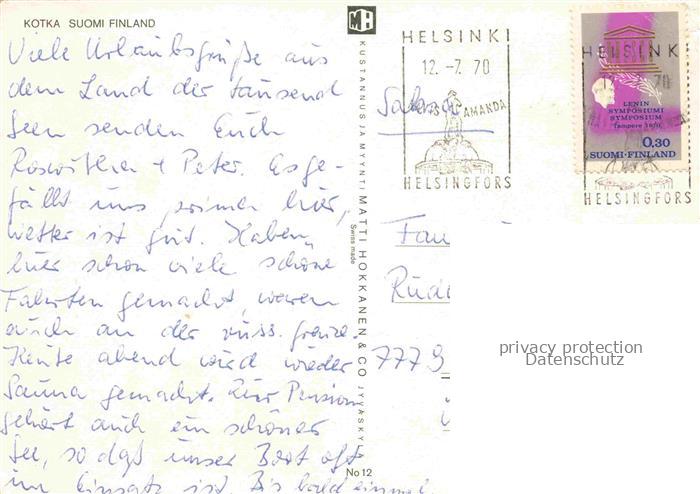 KOTKA SUOMI FINLAND
Viele Urlaubsgrüße aus
dem Land der tausend
Seen senden Euch
Roswitha + Peter. Es ge-
fällt uns prima hier,
Wetter ist gut. Haben
hier schon viele schöne
Fahrten gemacht, waren
auch an der russ. Grenze.
Heute abend wird wieder
Sauna gemacht. Zur Pension
gehört auch ein schöner
See, so daß unser Boot oft
im Einsatz ist. Bis bald einmal
MH
KUSTANNUS JA MYYNTI MATTI HOKKANEN & CO JYVÄSKYLÄ
Swiss made
No 12
HELSINKI
12.-7.70
AMANDA
HELSINGFORS
HELSINKI
70
HELSINGFORS
LENIN
SYMPOSIUMI
SYMPOSIUM
Tampere 1970
0,30
SUOMI-FINLAND
Fam
Rüd
7779
privacy protection
Datenschutz